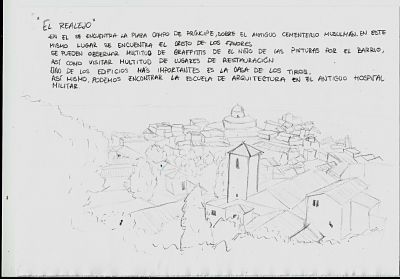 "EL REALEJO"
EN EL SE ENCUENTRA LA PLAZA CAMPO DE PRÍNCIPE, SOBRE EL ANTIGUO CEMENTERIO MUSULMÁN. EN ESTE
MISMO LUGAR SE ENCUENTRA EL CRISTO DE LOS FAVORES.
SE PUEDEN OBSERVAR MULTITUD DE GRAFFITIS DE EL NIÑO DE LAS PINTURAS POR EL BARRIO,
ASÍ COMO VISITAR MULTITUD DE LUGARES DE RESTAURACIÓN
UNO DE LOS EDIFICIOS MÁS IMPORTANTES ES LA CASA DE LOS TIROS.
ASÍ MISMO, PODEMOS ENCONTRAR LA ESCUELA DE ARQUITECTURA EN EL ANTIGUO HOSPITAL
MILITAR.